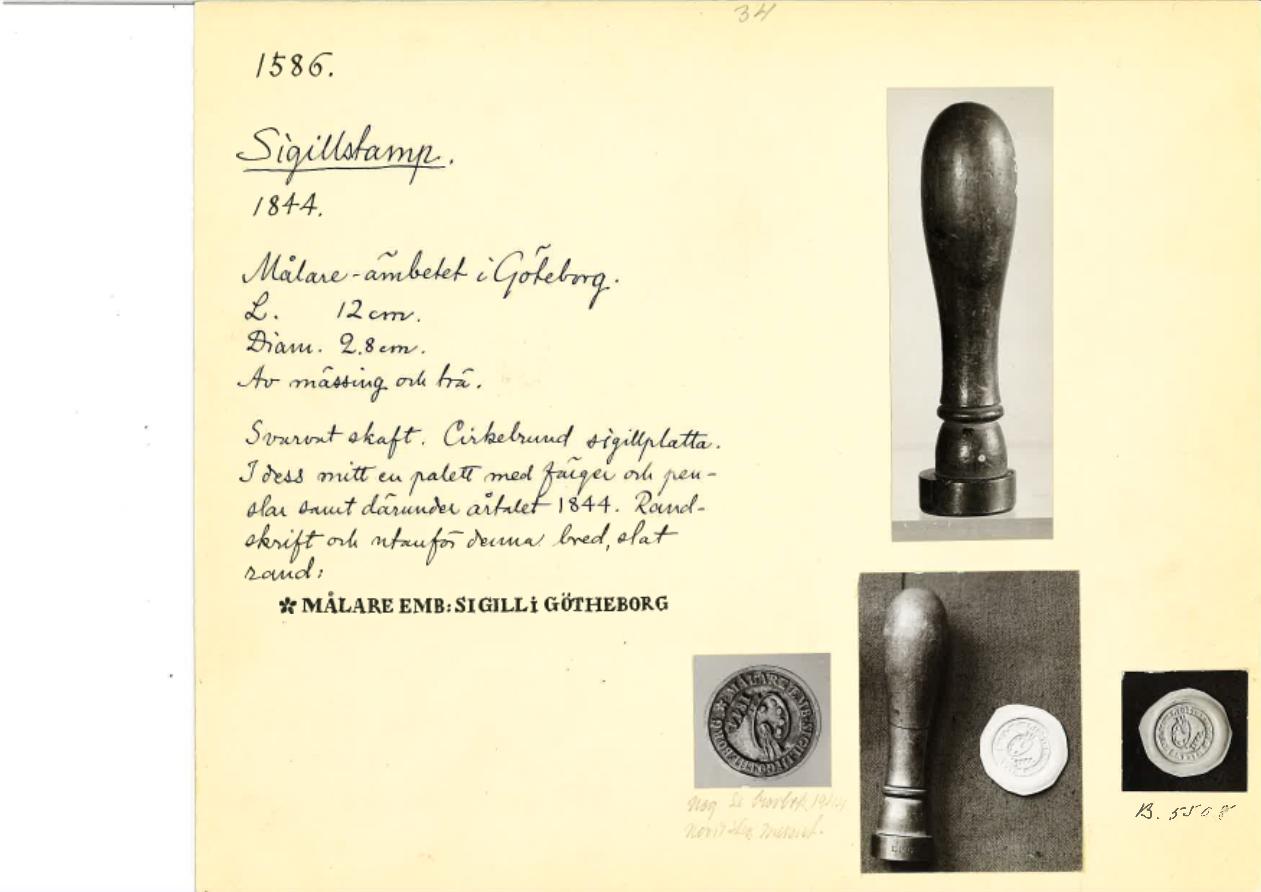 34
1586.
Sigillstamp.
1844.
Målare-ämbetet i Göteborg.
L. 12 cm.
Diam. 2.8 cm.
Av mässing och trä.
Svarvat skaft. Cirkelrund sigillplatta.
I dess mitt en palett med färger och pen-
slar samt därunder årtalet 1844. Rand-
skrift och utanför denna bred, slät
rand:
✽ MÅLARE EMB: SIGILL i GÖTHEBORG
Neg
B. 5508